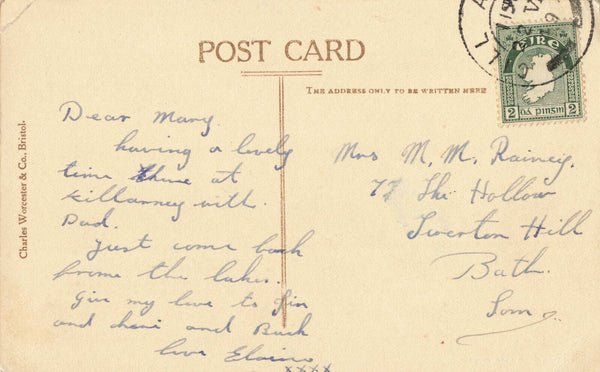 POST CARD
THE ADDRESS ONLY TO BE WRITTEN HERE
Charles Worcester & Co., Bristol.
ÉIRE
2 pinginn 2
Dear Mary.
having a lovely
time at
Killarney with.
Dad.
Just come back
frome the lakes.
Give my love to
and and
love Elaine
xxxx
Mrs M. M. Rainey.
77 The Hollow
Twerton Hill
Bath.
Som.